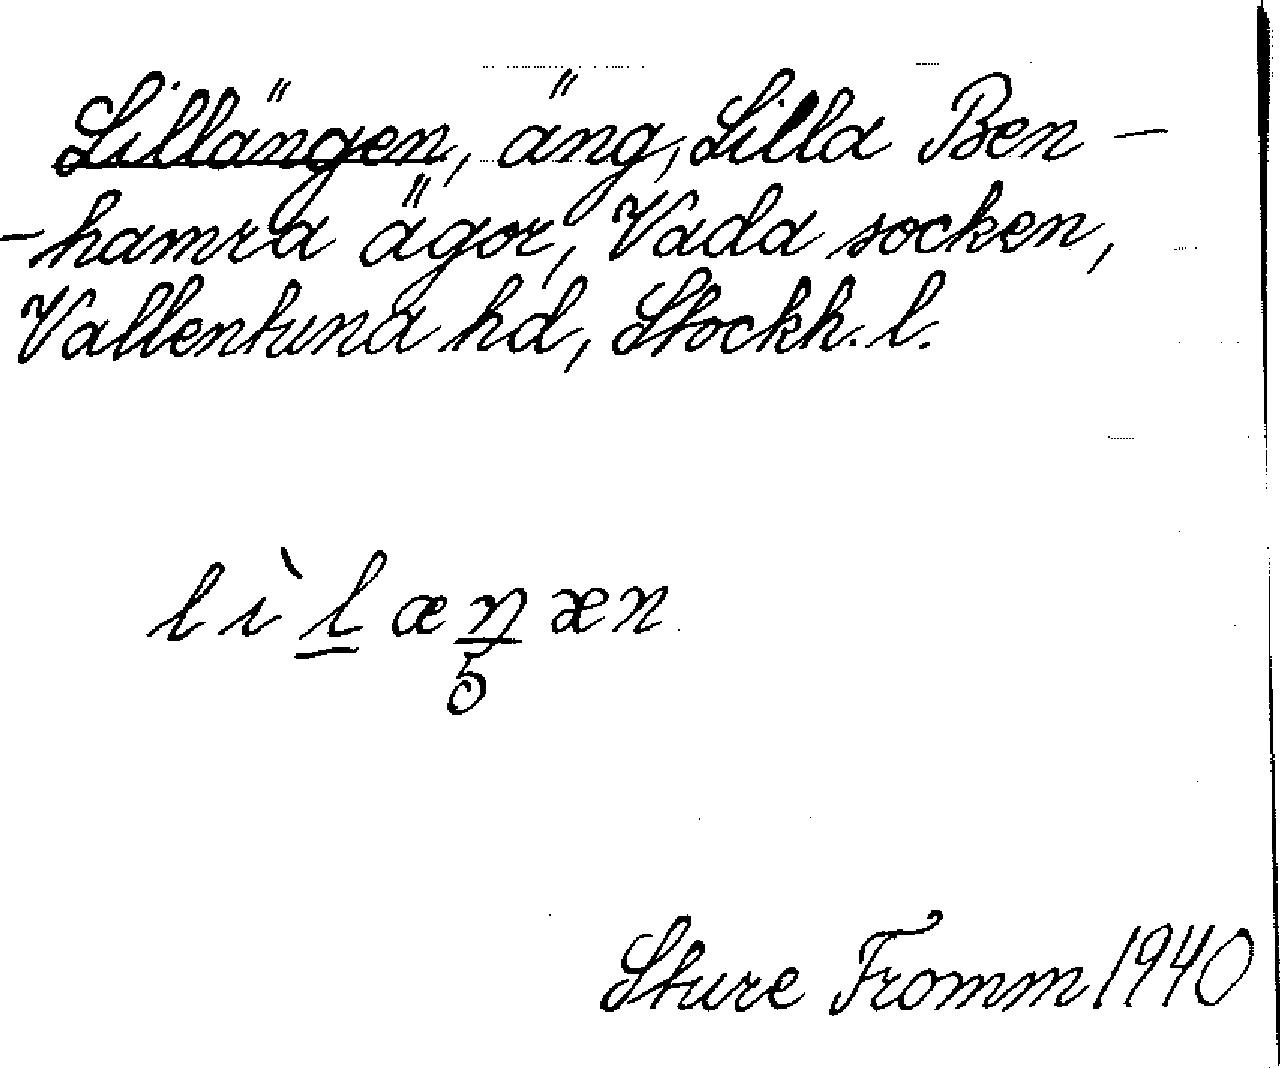 Lillängen, äng, Lilla Ben-
-hamra ägor, Vada socken,
Vallentuna hd, Stockh. l.
lìlæŋæn
5
Sture Fromm 1940